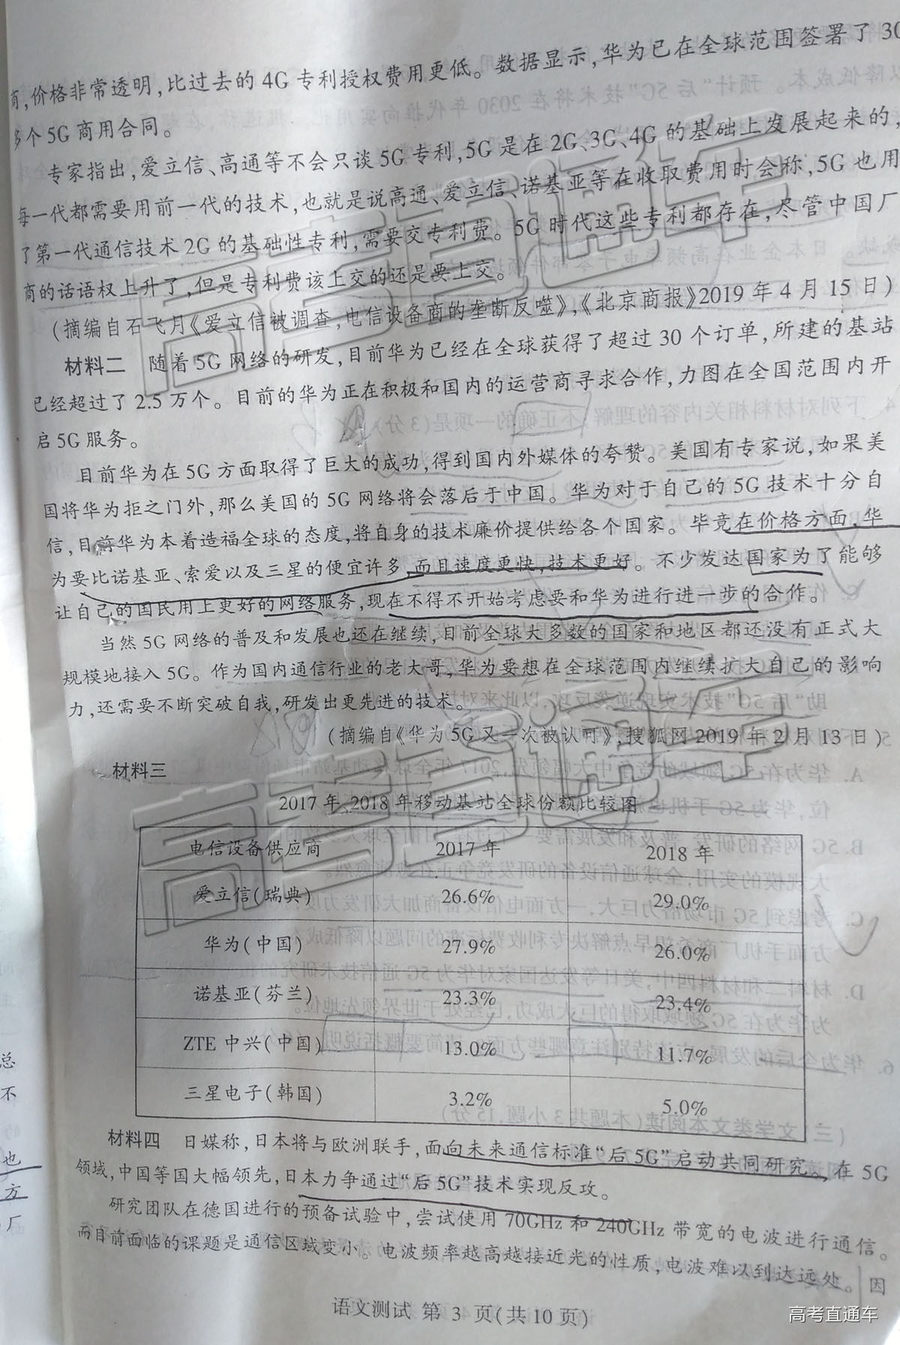 商,价格非常透明,比过去的 4G 专利授权费用更低。数据显示,华为已在全球范围签署了 30
多个 5G 商用合同。
专家指出,爱立信、高通等不会只谈 5G 专利,5G 是在 2G、3G、4G 的基础上发展起来的,
每一代都需要用前一代的技术,也就是说高通、爱立信、诺基亚等在收取费用时会称,5G 也用
了第一代通信技术 2G 的基础性专利,需要交专利费。5G 时代这些专利都存在,尽管中国厂
商的话语权上升了,但是专利费该上交的还是要上交。
(摘编自石飞月《爱立信被调查,电信设备商的垄断反噬》,《北京商报》2019 年 4 月 15 日)
材料二 随着 5G 网络的研发,目前华为已经在全球获得了超过 30 个订单,所建的基站
已经超过了 2.5 万个。目前的华为正在积极和国内的运营商寻求合作,力图在全国范围内开
启 5G 服务。
目前华为在 5G 方面取得了巨大的成功,得到国内外媒体的夸赞。美国有专家说,如果美
国将华为拒之门外,那么美国的 5G 网络将会落后于中国。华为对于自己的 5G 技术十分自
信,目前华为本着造福全球的态度,将自身的技术廉价提供给各个国家。毕竟在价格方面,华
为要比诺基亚、索爱以及三星的便宜许多,而且速度更快,技术更好。不少发达国家为了能够
让自己的国民用上更好的网络服务,现在不得不开始考虑要和华为进行进一步的合作。
当然 5G 网络的普及和发展也还在继续,目前全球大多数的国家和地区都还没有正式大
规模地接入 5G。作为国内通信行业的老大哥,华为要想在全球范围内继续扩大自己的影响
力,还需要不断突破自我,研发出更先进的技术。
(摘编自《华为 5G 又一次被认可》,搜狐网 2019 年 2 月 13 日)
材料三
2017 年、2018 年移动基站全球份额比较图
电信设备供应商 2017 年 2018 年
爱立信(瑞典) 26.6% 29.0%
华为(中国) 27.9% 26.0%
诺基亚(芬兰) 23.3% 23.4%
ZTE 中兴(中国) 13.0% 11.7%
三星电子(韩国) 3.2% 5.0%
材料四 日媒称,日本将与欧洲联手,面向未来通信标准“后 5G”启动共同研究。在 5G
领域,中国等国大幅领先,日本力争通过“后 5G”技术实现反攻。
研究团队在德国进行的预备试验中,尝试使用 70GHz 和 240GHz 带宽的电波进行通信。
而目前面临的课题是通信区域变小。电波频率越高越接近光的性质,电波难以到达远处。因
语文测试 第 3 页(共 10 页)
总
不
也
方
厂
高考直通车
高考直通车
高考直通车